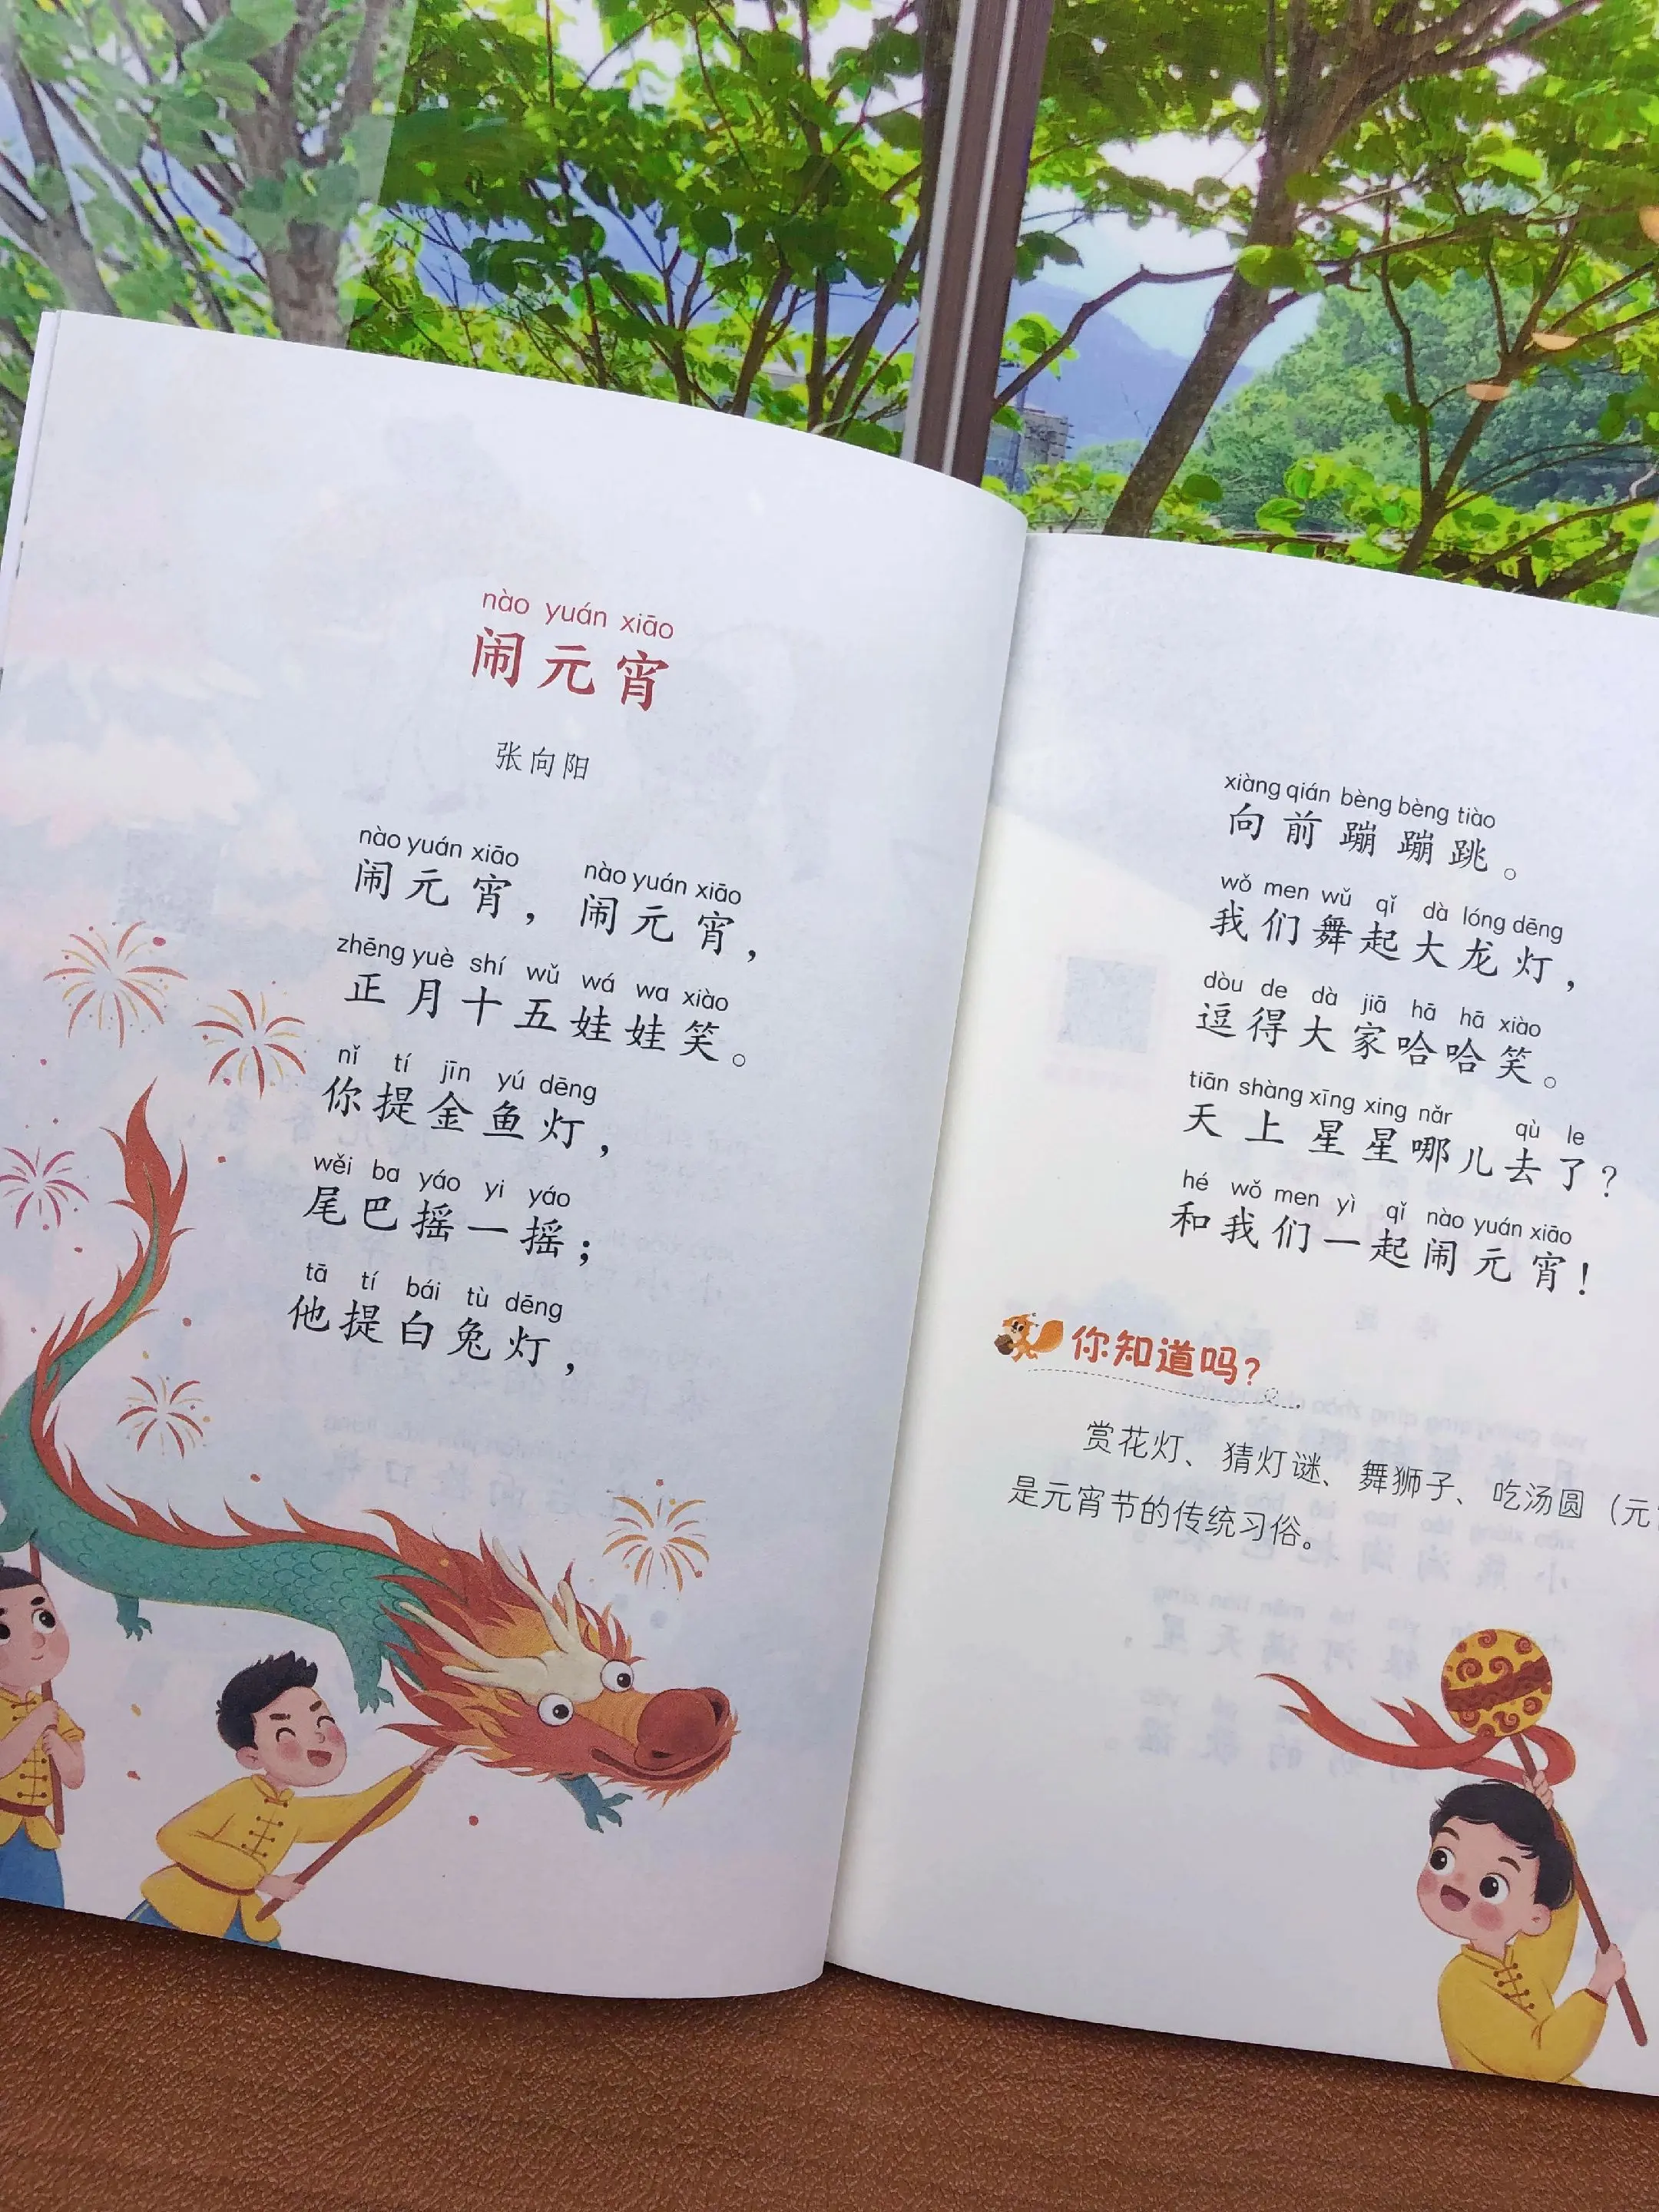 nào yuán xiāo
闹元宵
张向阳
nào yuán xiāo nào yuán xiāo
闹元宵，闹元宵，
zhēng yuè shí wǔ wá wa xiào
正月十五娃娃笑。
nǐ tí jīn yú dēng
你提金鱼灯，
wěi ba yáo yi yáo
尾巴摇一摇；
tā tí bái tù dēng
他提白兔灯，
xiàng qián bèng bèng tiào
向前蹦蹦跳。
wǒ men wǔ qǐ dà lóng dēng
我们舞起大龙灯，
dòu de dà jiā hā hā xiào
逗得大家哈哈笑。
tiān shàng xīng xing nǎr qù le
天上星星哪儿去了？
hé wǒ men yì qǐ nào yuán xiāo
和我们一起闹元宵！
你知道吗？
赏花灯、猜灯谜、舞狮子、吃汤圆（元
是元宵节的传统习俗。